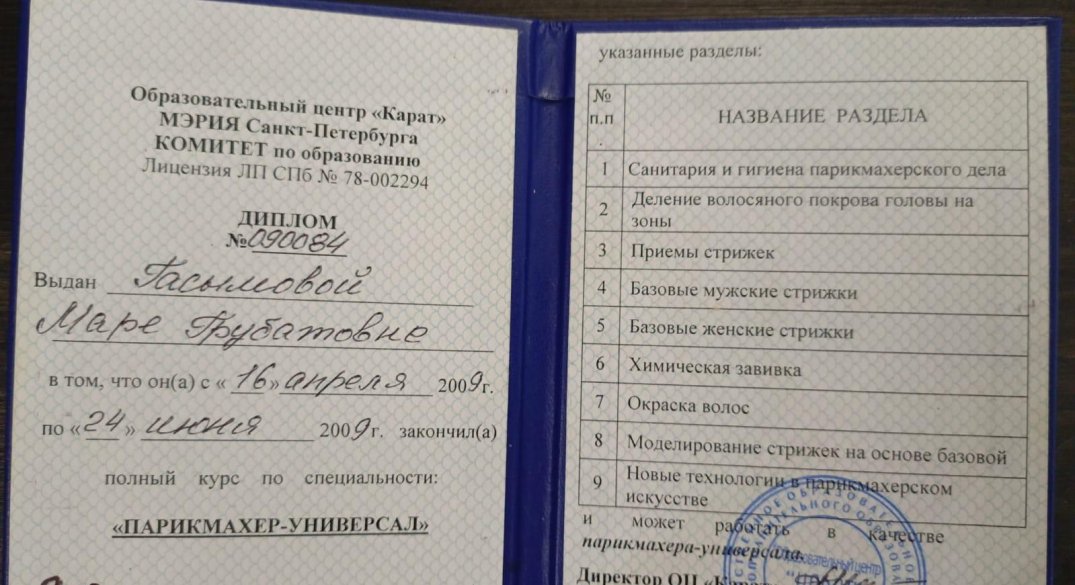 Образовательный центр «Карат»
МЭРИЯ Санкт-Петербурга
КОМИТЕТ по образованию
Лицензия ЛП СПб № 78-002294
ДИПЛОМ
№090084
Выдан Гасымовой
Маре Трубатовне
в том, что он(а) с «16» апреля 2009г.
по «24» июня 2009г. закончил(а)
полный курс по специальности:
«ПАРИКМАХЕР-УНИВЕРСАЛ»
указанные разделы:
№ НАЗВАНИЕ РАЗДЕЛА
п.п
.
1 Санитария и гигиена парикмахерского дела
2 Деление волосяного покрова головы на
зоны
3 Приемы стрижек
4 Базовые мужские стрижки
5 Базовые женские стрижки
6 Химическая завивка
7 Окраска волос
8 Моделирование стрижек на основе базовой
9 Новые технологии в парикмахерском
искусстве
и может работать в качестве
парикмахера-универсала.
Директор ОЦ «Карат